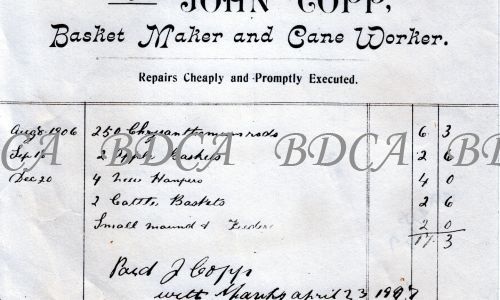 JOHN COPP,
Basket Maker and Cane Worker.
Repairs Cheaply and Promptly Executed.
Aug 8 1906 250 Chrysanthemum rods 6 3
Sep 2 Apple Baskets 2 6
Dec 20 4 New Hampers 4 0
2 Cattle Baskets 2 6
Small maund & 2 0
17 3
BDCA BDCA BDCA
Paid J Copp
with thanks april 23 1907